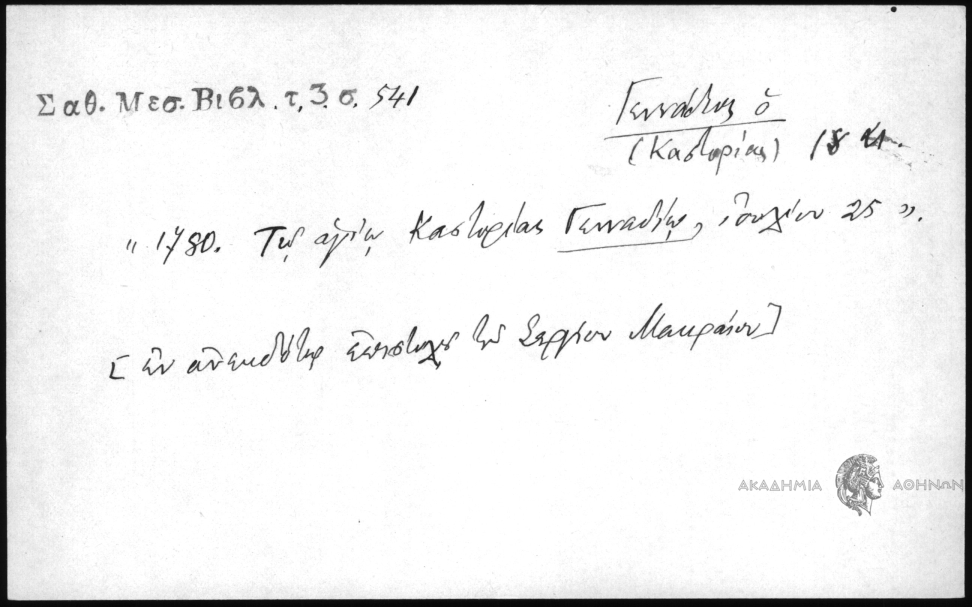 Σαθ. Μεσ. Βιβλ. τ. 3. σ. 541
Γεννάδιος ὁ
(Καστορίας) 18
" 1780. Τῷ ἁγίῳ Καστορίας Γενναδίῳ, ἰουλίου 25 ".
[ἐν ἀνεκδότῳ ἐπιστολῇ τοῦ Σεργίου Μακραίου]
ΑΚΑΔΗΜΙΑ ΑΘΗΝΩΝ